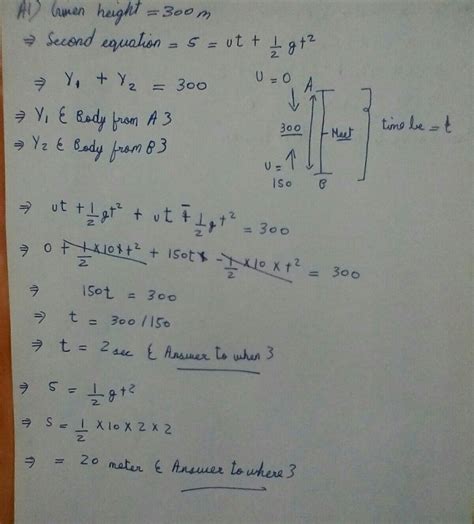 A1) Given height = 300m
⇒ Second equation = S = ut + 1/2 gt²
⇒ Y₁ + Y₂ = 300
⇒ Y₁ { Body from A }
⇒ Y₂ { Body from B }
U = 0 A
300
Meet
time be = t
U = 150
B
⇒ ut + 1/2 gt² + ut - 1/2 gt² = 300
⇒ 0 + 1/2 × 10 × t² + 150t - 1/2 × 10 × t² = 300
⇒ 150t = 300
⇒ t = 300/150
⇒ t = 2 sec { Answer to when }
⇒ S = 1/2 gt²
⇒ S = 1/2 × 10 × 2 × 2
⇒ = 20 meter { Answer to where }